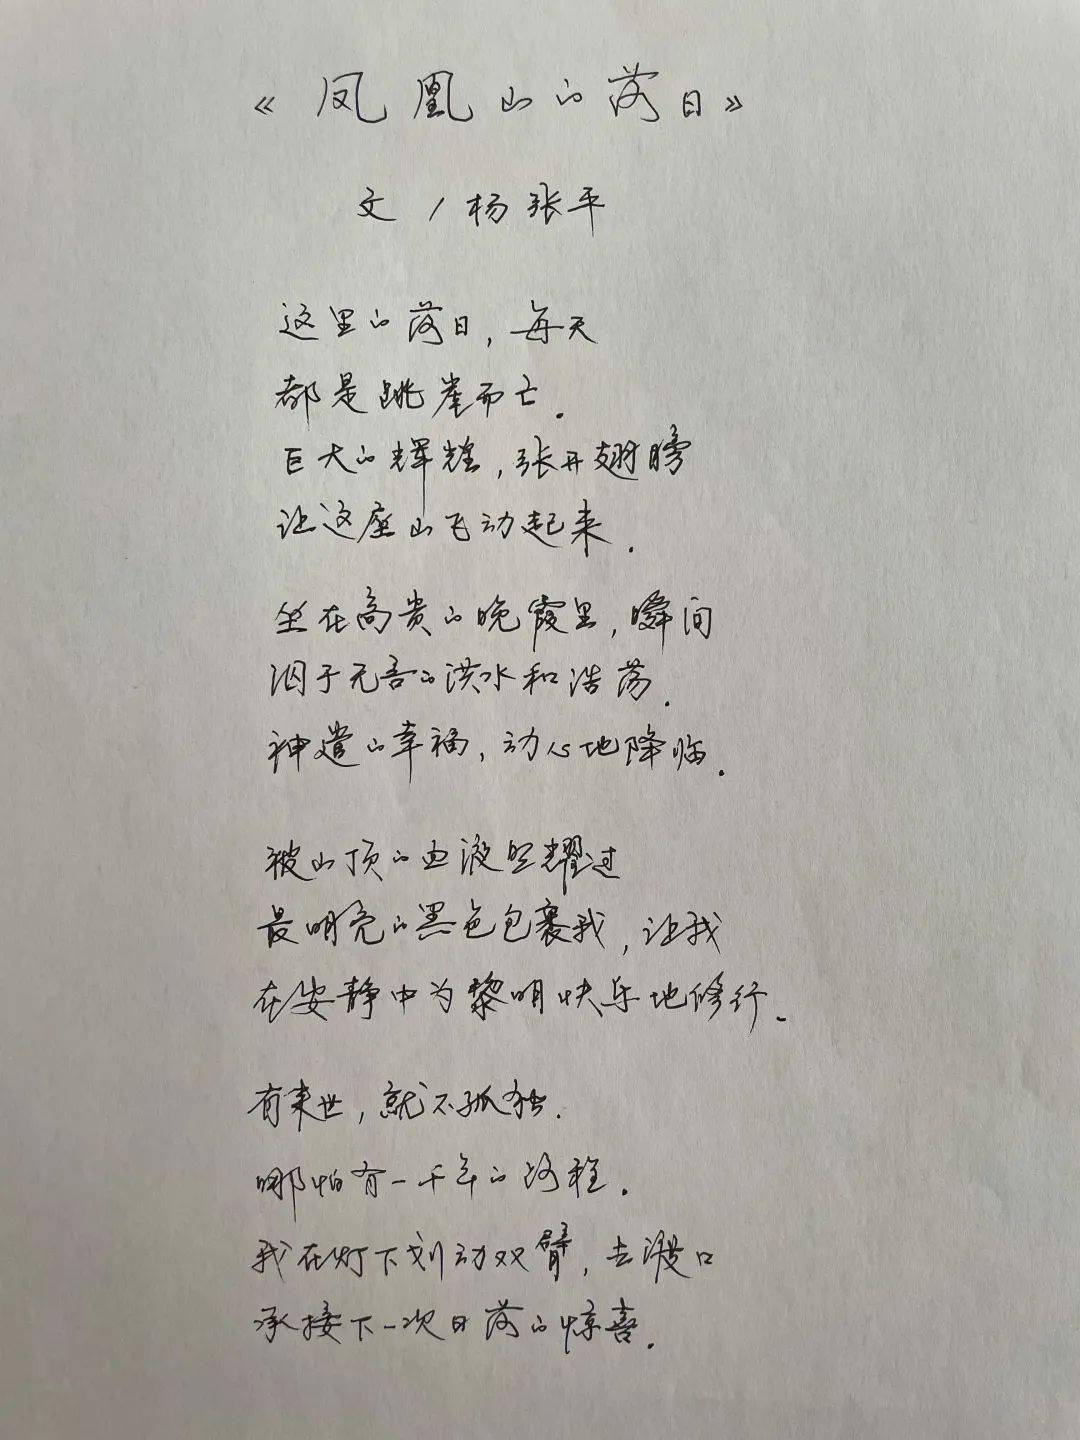 《凤凰山的落日》
文/杨张平
这里的落日，每天
都是跳崖而亡．
巨大的辉煌，张开翅膀
让这座山飞动起来．
坐在高贵的晚霞里，瞬间
泅于无吾的洪水和浩荡．
神遣的幸福，动心地降临．
被山顶的血液照耀过
最明亮的黑色包裹我，让我
在安静中为黎明快乐地修行．
有来世，就不孤独．
哪怕有一千年的路程．
我在灯下划动双臂，去渡口
承接下一次日落的惊喜．